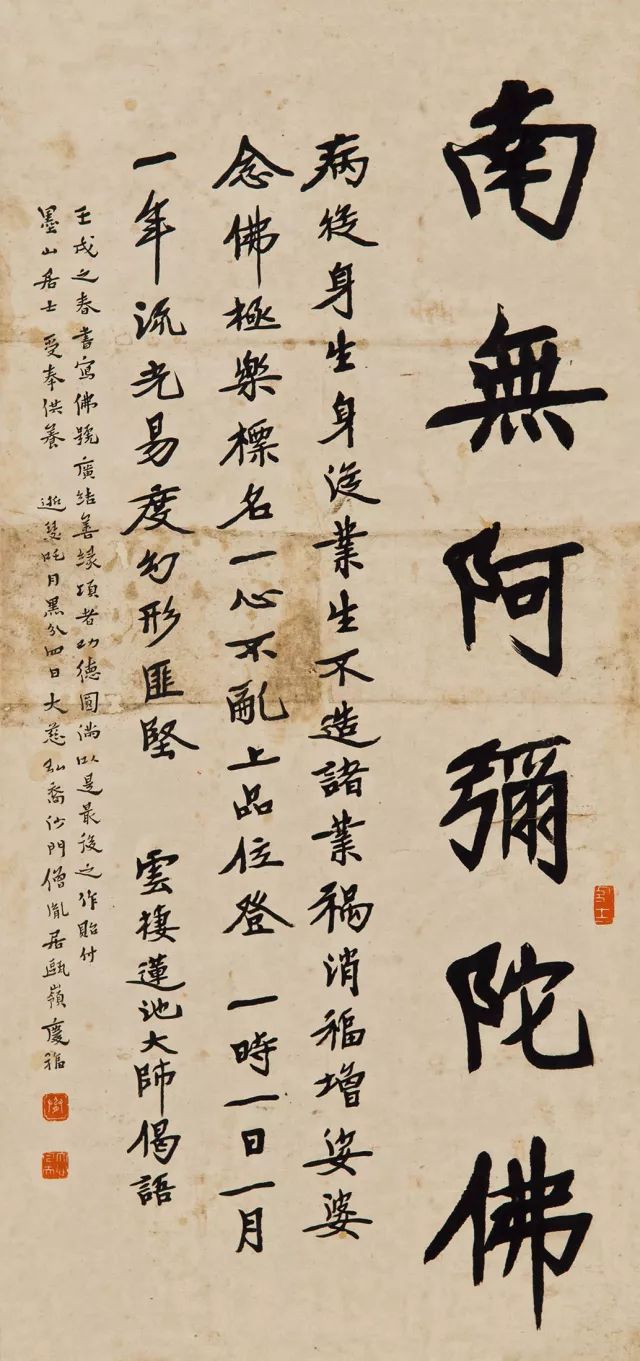 南無阿彌陀佛
病從身生身從業生不造諸業禍消福增娑婆
念佛極樂標名一心不亂上品位登 一時一日一月
一年流光易度幻形匪堅 雲棲蓮池大師偈語
壬戌之春書寫佛號廣結善緣頃者功德圓滿以是最後之作貽付
墨山居士 受奉供養 逝瑟吒月黑分四日大慈弘裔沙門僧胤居甌嶺慶福